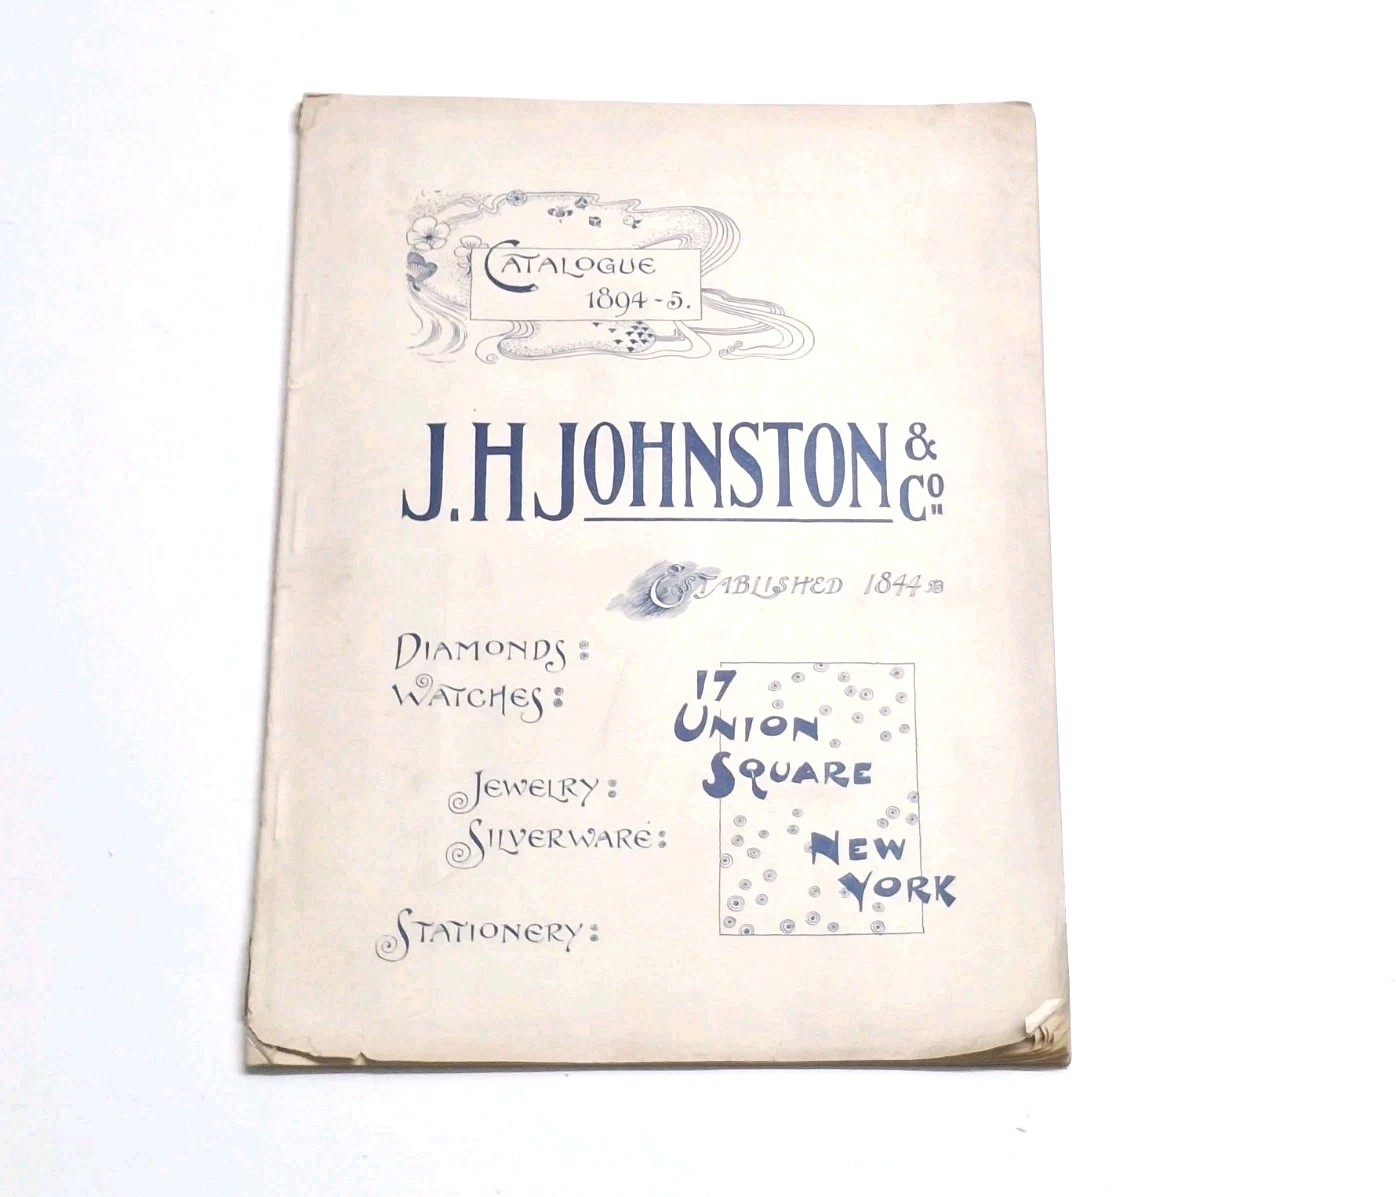 CATALOGUE
1894-5.
J.H JOHNSTON & Co
ESTABLISHED 1844
DIAMONDS:
WATCHES:
JEWELRY:
SILVERWARE:
STATIONERY:
17
UNION
SQUARE
NEW
YORK